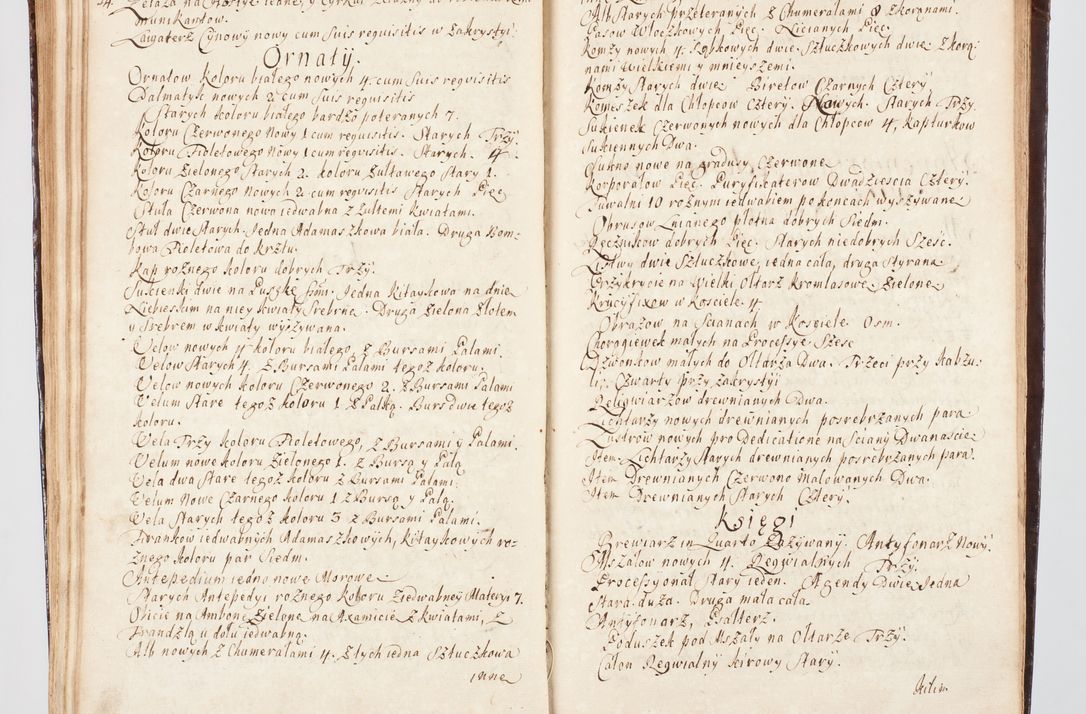 munikantow.
Lawaterz Cynowy nowy cum suis requisitis w Zakrystyi.
Ornaty.
Ornatow Koloru białego nowych 4. cum suis requisitis
Dalmatyk nowych 2. cum suis requisitis
Starych koloru białego bardzo poteranych 7.
Koloru Czerwonego Nowy 1 cum requisitis. Starych Trzy.
Koloru Fioletowego Nowy 1 cum requisitis. Starych. 4.
Koloru Zielonego Starych 2. koloru Zułtawego Stary 1.
Koloru Czarnego Nowych 2. cum requisitis Starych Pięc
Stuła Czerwona nowa iedwabna z Zułtemi kwiatami.
Stuł dwie Starych. Jedna Adamaszkowa biała. Druga Bom-
bowa Fioletowa do krztu.
Kap rożnego koloru dobrych Trzy.
Sukienki dwie na Puszkę Jedna Kitaykowa na dnie
na niey kwiaty Srebrne. Druga Zielona Złotem
y Srebrem w kwiaty wyszywana.
Velow nowych 4 koloru białego, z Bursami Palami.
Velow Starych 4. z Bursami Palami tegoz koloru.
Velow nowych koloru Czerwonego 2. z Bursami Palami
Velum Stare tegoz koloru 1 z Palką. Burs dwie tegoz
koloru.
Vela Trzy koloru Fioletowego, z Bursami y Palami.
Velum nowe koloru Zielonego 1. z Bursą y Palą
Vela dwa Stare tegoz koloru z Bursami Palami.
Velum Nowe Czarnego koloru 1 z Bursą y Palą.
Vela Starych tegoz koloru 3 z Bursami Palami.
Firankow iedwabnych Adamaszkowych, kitaykowych ro-
znego koloru par Siedm.
Antepedium iedno nowe Morowe
Starych Antepedyi rożnego Koloru Ziedwabney Materyi 7.
Obicie na Ambone Zielone na Axamicie z kwiatami, z
Frandzlą u dołu iedwabną.
Alb nowych z Chumerałami 4. z tych iedna Sztuczkowa
inne
Alb Starych przeteranych z Chumerałami 8 z koronami.
Pasow Włoczkowych Pięc. Nicianych Pięc.
Komzy nowych 4. dwie Sztuczkowych dwie z koro-
nami Wielkiemi y mnieyszemi.
Komzy Starych dwie Biretow Czarnych Cztery
Komeszek dla Chłopcow Cztery. Nowych. Starych Trzy.
Sukienek Czerwonych nowych dla Chłopcow 4, Kapturkow
Sukiennych Dwa.
Sukno nowe na gradusy Czerwone
Korporałow Pięc. Puryficaterow Dwadziescia Cztery.
Tuwalni 10 rożnym iedwabiem po koncach wyszywane
Obrusow Lnianego płotna dobrych Siedm.
Ręcznikow dobrych Pięc. Starych niedobrych Szesc.
dwie Sztuczkowe, iedna cała, druga styrana
Przykrycie na Wielki Ołtarz kromlasowe Zielone
Krucyfixow w Kosciele 4
Obrazow na Scianach w Kosciele Osm.
Chorągiewek małych na Processye Szesc
Dzwonkow małych do Ołtarza Dwa. Trzeci przy
Czwarty przy zakrystyi
Religwiarzow drewnianych Dwa.
Lichtarzy nowych drewnianych posrebrzanych para
Lustrow nowych pro Dedicatione na Sciany Dwanascie
Item Lichtarzy Starych drewnianych posrebrzanych para.
Item Drewnianych Czerwono Malowanych Dwa.
Item Drewnianych Starych Cztery.
Księgi
Brewiarz in Quarto Zazywany. Antyfonarz Nowy.
Mszałow nowych 4. Reqwialnych Trzy.
Processyonał Stary ieden. Agendy Dwie Jedna
Stara duza. Druga mała cała
Antyfonarz, Psałterz.
Poduszek pod Mszały na Ołtarze Trzy.
Całon Reqwialny kirowy Stary.
Kilim